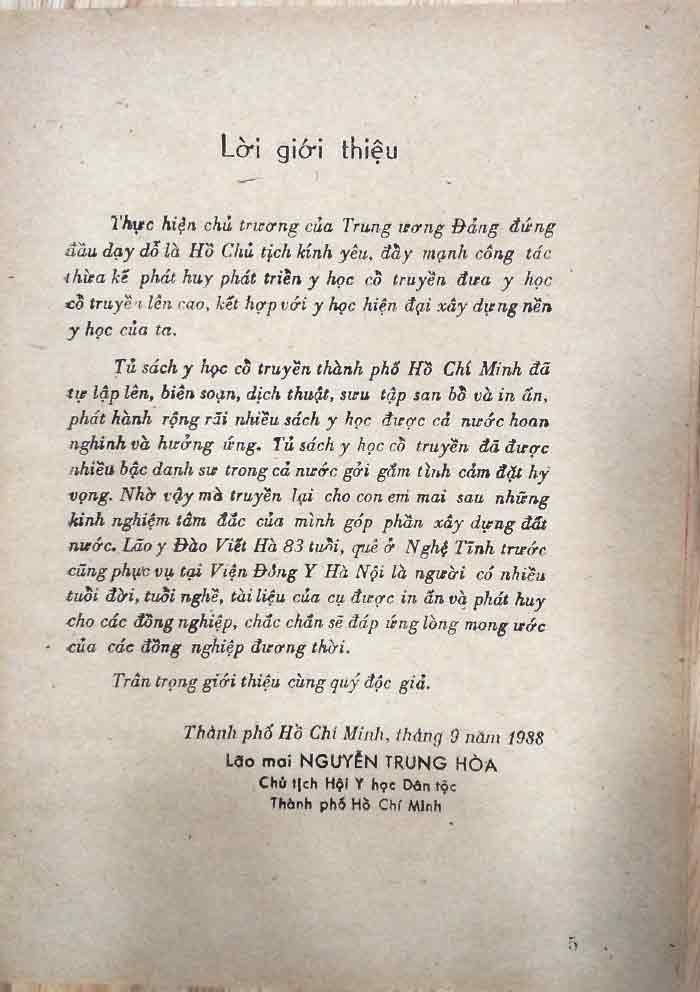 Lời giới thiệu
Thực hiện chủ trương của Trung ương Đảng đứng
đầu dạy dỗ là Hồ Chủ tịch kính yêu, đẩy mạnh công tác
thừa kế phát huy phát triển y học cổ truyền đưa y học
cổ truyền lên cao, kết hợp với y học hiện đại xây dựng nền
y học của ta.
Tủ sách y học cổ truyền thành phố Hồ Chí Minh đã
tự lập lên, biên soạn, dịch thuật, sưu tập san bổ và in ấn,
phát hành rộng rãi nhiều sách y học được cả nước hoan
nghinh và hưởng ứng. Tủ sách y học cổ truyền đã được
nhiều bậc danh sư trong cả nước gởi gắm tình cảm đặt hy
vọng. Nhờ vậy mà truyền lại cho con em mai sau những
kinh nghiệm tâm đắc của mình góp phần xây dựng đất
nước. Lão y Đào Viết Hà 83 tuổi, quê ở Nghệ Tĩnh trước
cũng phục vụ tại Viện Đông Y Hà Nội là người có nhiều
tuổi đời, tuổi nghề, tài liệu của cụ được in ấn và phát huy
cho các đồng nghiệp, chắc chắn sẽ đáp ứng lòng mong ước
của các đồng nghiệp đương thời.
Trân trọng giới thiệu cùng quý độc giả.
Thành phố Hồ Chí Minh, tháng 9 năm 1988
Lão mai NGUYỄN TRUNG HÒA
Chủ tịch Hội Y học Dân tộc
Thành phố Hồ Chí Minh
5